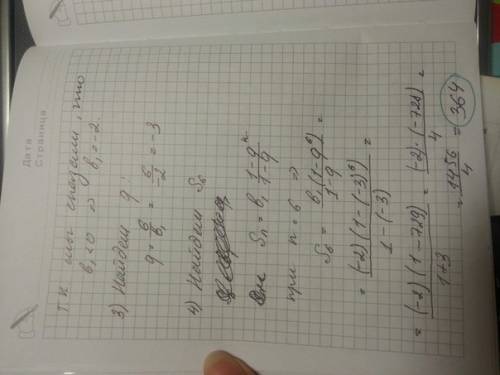 Дата
Страница
т.к мы сказали, что
b₁<0 ⇒ b₁=-2.
3) Найдем q:
q = 6/b₁ = 6/-2 = -3
4) Найдем S₆
Sn = b₁ (1-qⁿ)/(1-q)
при n = 6 ⇒
S₆ = b₁(1-q⁶)/(1-q) =
= (-2)(1-(-3)⁶)/(1-(-3)) =
= (-2)(1-729)/(1+3) = (-2)·(-728)/4 =
= 1456/4 = 364